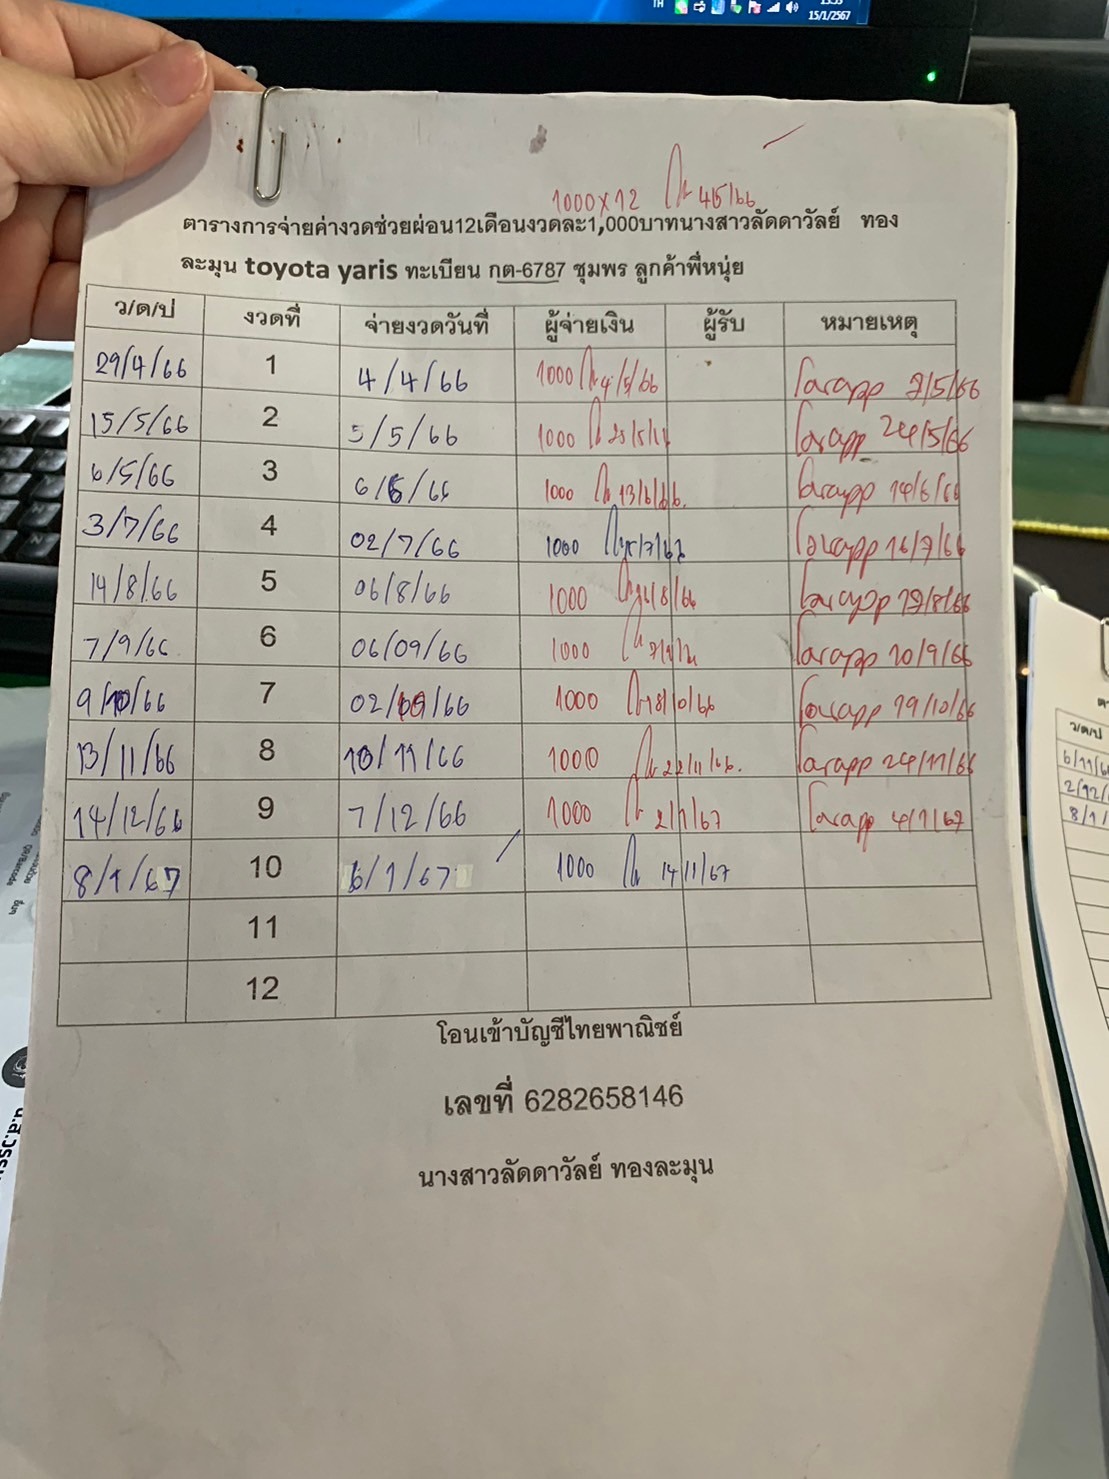 TH
15/1/2567
1000x12 45/66
ตารางการจ่ายค่างวดช่วยผ่อน12เดือนงวดละ1,000บาทนางสาวลัดดาวัลย์ ทอง
ละมุน toyota yaris ทะเบียน กต-6787 ชุมพร ลูกค้าพี่หนุ่ย
ว/ด/ป งวดที่ จ่ายงวดวันที่ ผู้จ่ายเงิน ผู้รับ หมายเหตุ
29/4/66 1 4/4/66 1000 4/5/66 โอนapp 7/5/66
15/5/66 2 5/5/66 1000 โอนapp 24/5/66
6/5/66 3 6/6/66 1000 13/6/66. โอนapp 14/6/66
3/7/66 4 02/7/66 1000 โอนapp 16/7/66
14/8/66 5 06/8/66 1000 โอนapp 19/8/66
7/9/66 6 06/09/66 1000 โอนapp 10/9/66
9/10/66 7 02/10/66 1000 18/10/66 โอนapp 19/10/66
13/11/66 8 10/11/66 1000 22/11/66. โอนapp 24/11/66
14/12/66 9 7/12/66 1000 2/1/67 โอนapp 4/1/67
8/1/67 10 6/1/67 1000 14/1/67
11
12
โอนเข้าบัญชีไทยพาณิชย์
เลขที่ 6282658146
นางสาวลัดดาวัลย์ ทองละมุน
ว/ด/ป